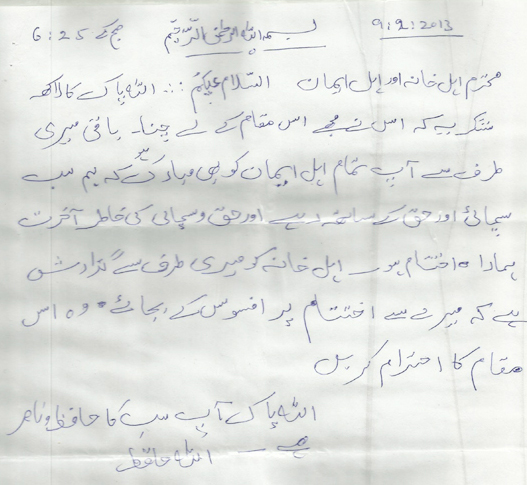 صبح کے 6:25 بسم اللہ الرحمٰن الرّحیم 9:2:2013
محترم اہل خانہ اور اہل ایمان السّلام علیکم ... اللہ پاک کا لاکھ
شکر ہے کہ اس نے مجھے اس مقام کے لے چنا۔ باقی میری
طرف سے آپ تمام اہل ایمان کو بھی مبارک ہو کہ ہم سب
سچائی اور حق کے ساتھ رہے اور حق و سچائی کی خاطر آخرت
ہمارا اختتام ہو۔ اہل خانہ کو میری طرف سے گذارش
ہے کہ میرے سے اختتام پر افسوس کے بجائے وہ اس
مقام کا احترام کریں
اللہ پاک آپ سب کا حافظ و ناصر
ہے۔ اللہ حافظ